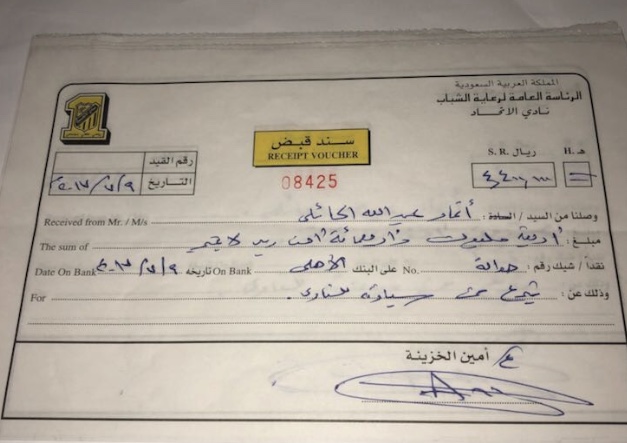 المملكة العربية السعودية
الرئاسة العامة لرعاية الشباب
نادي الاتحاد
سند قبض
RECEIPT VOUCHER
08425
ريال S. R. هـ H.
٤,٤٠٠,٠٠٠ =
رقم القيد
التاريخ ٢٠١٧/٧/٩
وصلنا من السيد / السادة : أنمار عبد الله الحائلي Received from Mr. / M/s
مبلغ : أربعة مليون وأربعمائة ألف ريال لا غير The sum of
نقداً / شيك رقم : حوالة No. على البنك الأهلي On Bank تاريخه ٢٠١٧/٧/٩ Date On Bank
وذلك عن : تبرع من سيادته للنادي . For
أمين الخزينة